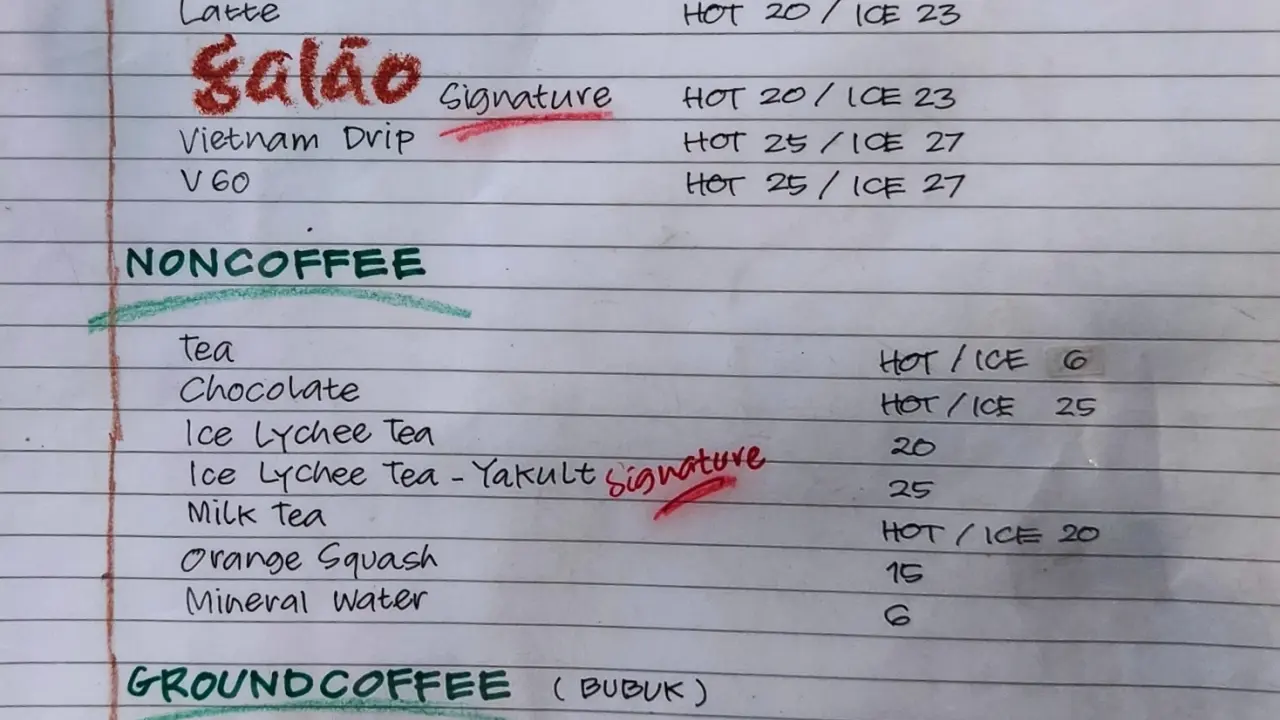 Latte HOT 20 / ICE 23
galão Signature HOT 20 / ICE 23
Vietnam Drip HOT 25 / ICE 27
V60 HOT 25 / ICE 27
NONCOFFEE
Tea HOT / ICE 6
Chocolate HOT / ICE 25
Ice Lychee Tea 20
Ice Lychee Tea - Yakult Signature 25
Milk Tea HOT / ICE 20
Orange Squash 15
Mineral Water 6
GROUNDCOFFEE (BUBUK)